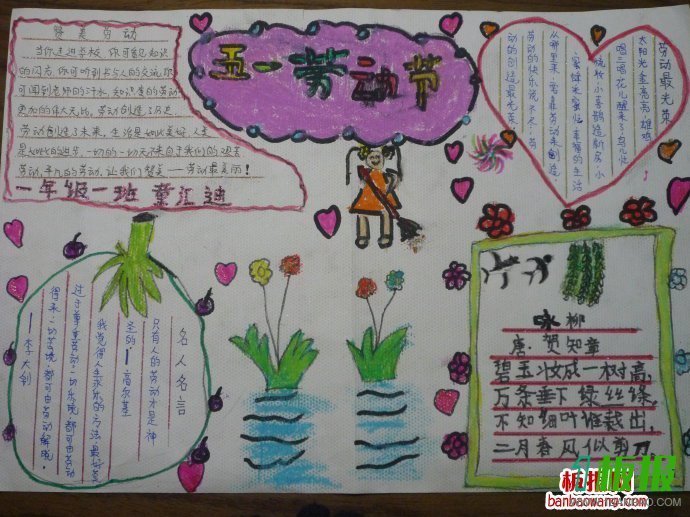 赞美劳动
当你走进学校,你可看见知识
的闪光,你可听到书与人的交流,你
可闻到老师的汗水,知识里的劳动
更加的伟大无比,劳动创造了历史
劳动创造了未来,生活是如此美好,人生
是如此的进步,一切的一切无不来自于我们的艰苦
劳动,平凡的劳动,让我们赞美——劳动最美丽!
一年级一班 董汇迪
五一劳动节
劳动最光荣
太阳光金亮亮,雄鸡
唱三唱,花儿醒来了,鸟儿忙
梳妆,小喜鹊造新房,小
蜜蜂采蜜忙,幸福的生活
从哪里来,要靠劳动来创造,
劳动的快乐说不尽,劳
动的创造最光荣
名人名言
只有人的劳动才是神
圣的——高尔基
我觉得人生求乐的方法,最好莫
过于尊重劳动。一切乐境,都可由劳动
得来,一切苦境,都可由劳动解脱。
——李大钊
咏柳
唐:贺知章
碧玉妆成一树高,
万条垂下绿丝绦,
不知细叶谁裁出,
二月春风似剪刀
板报网
banbaowang.com
板报